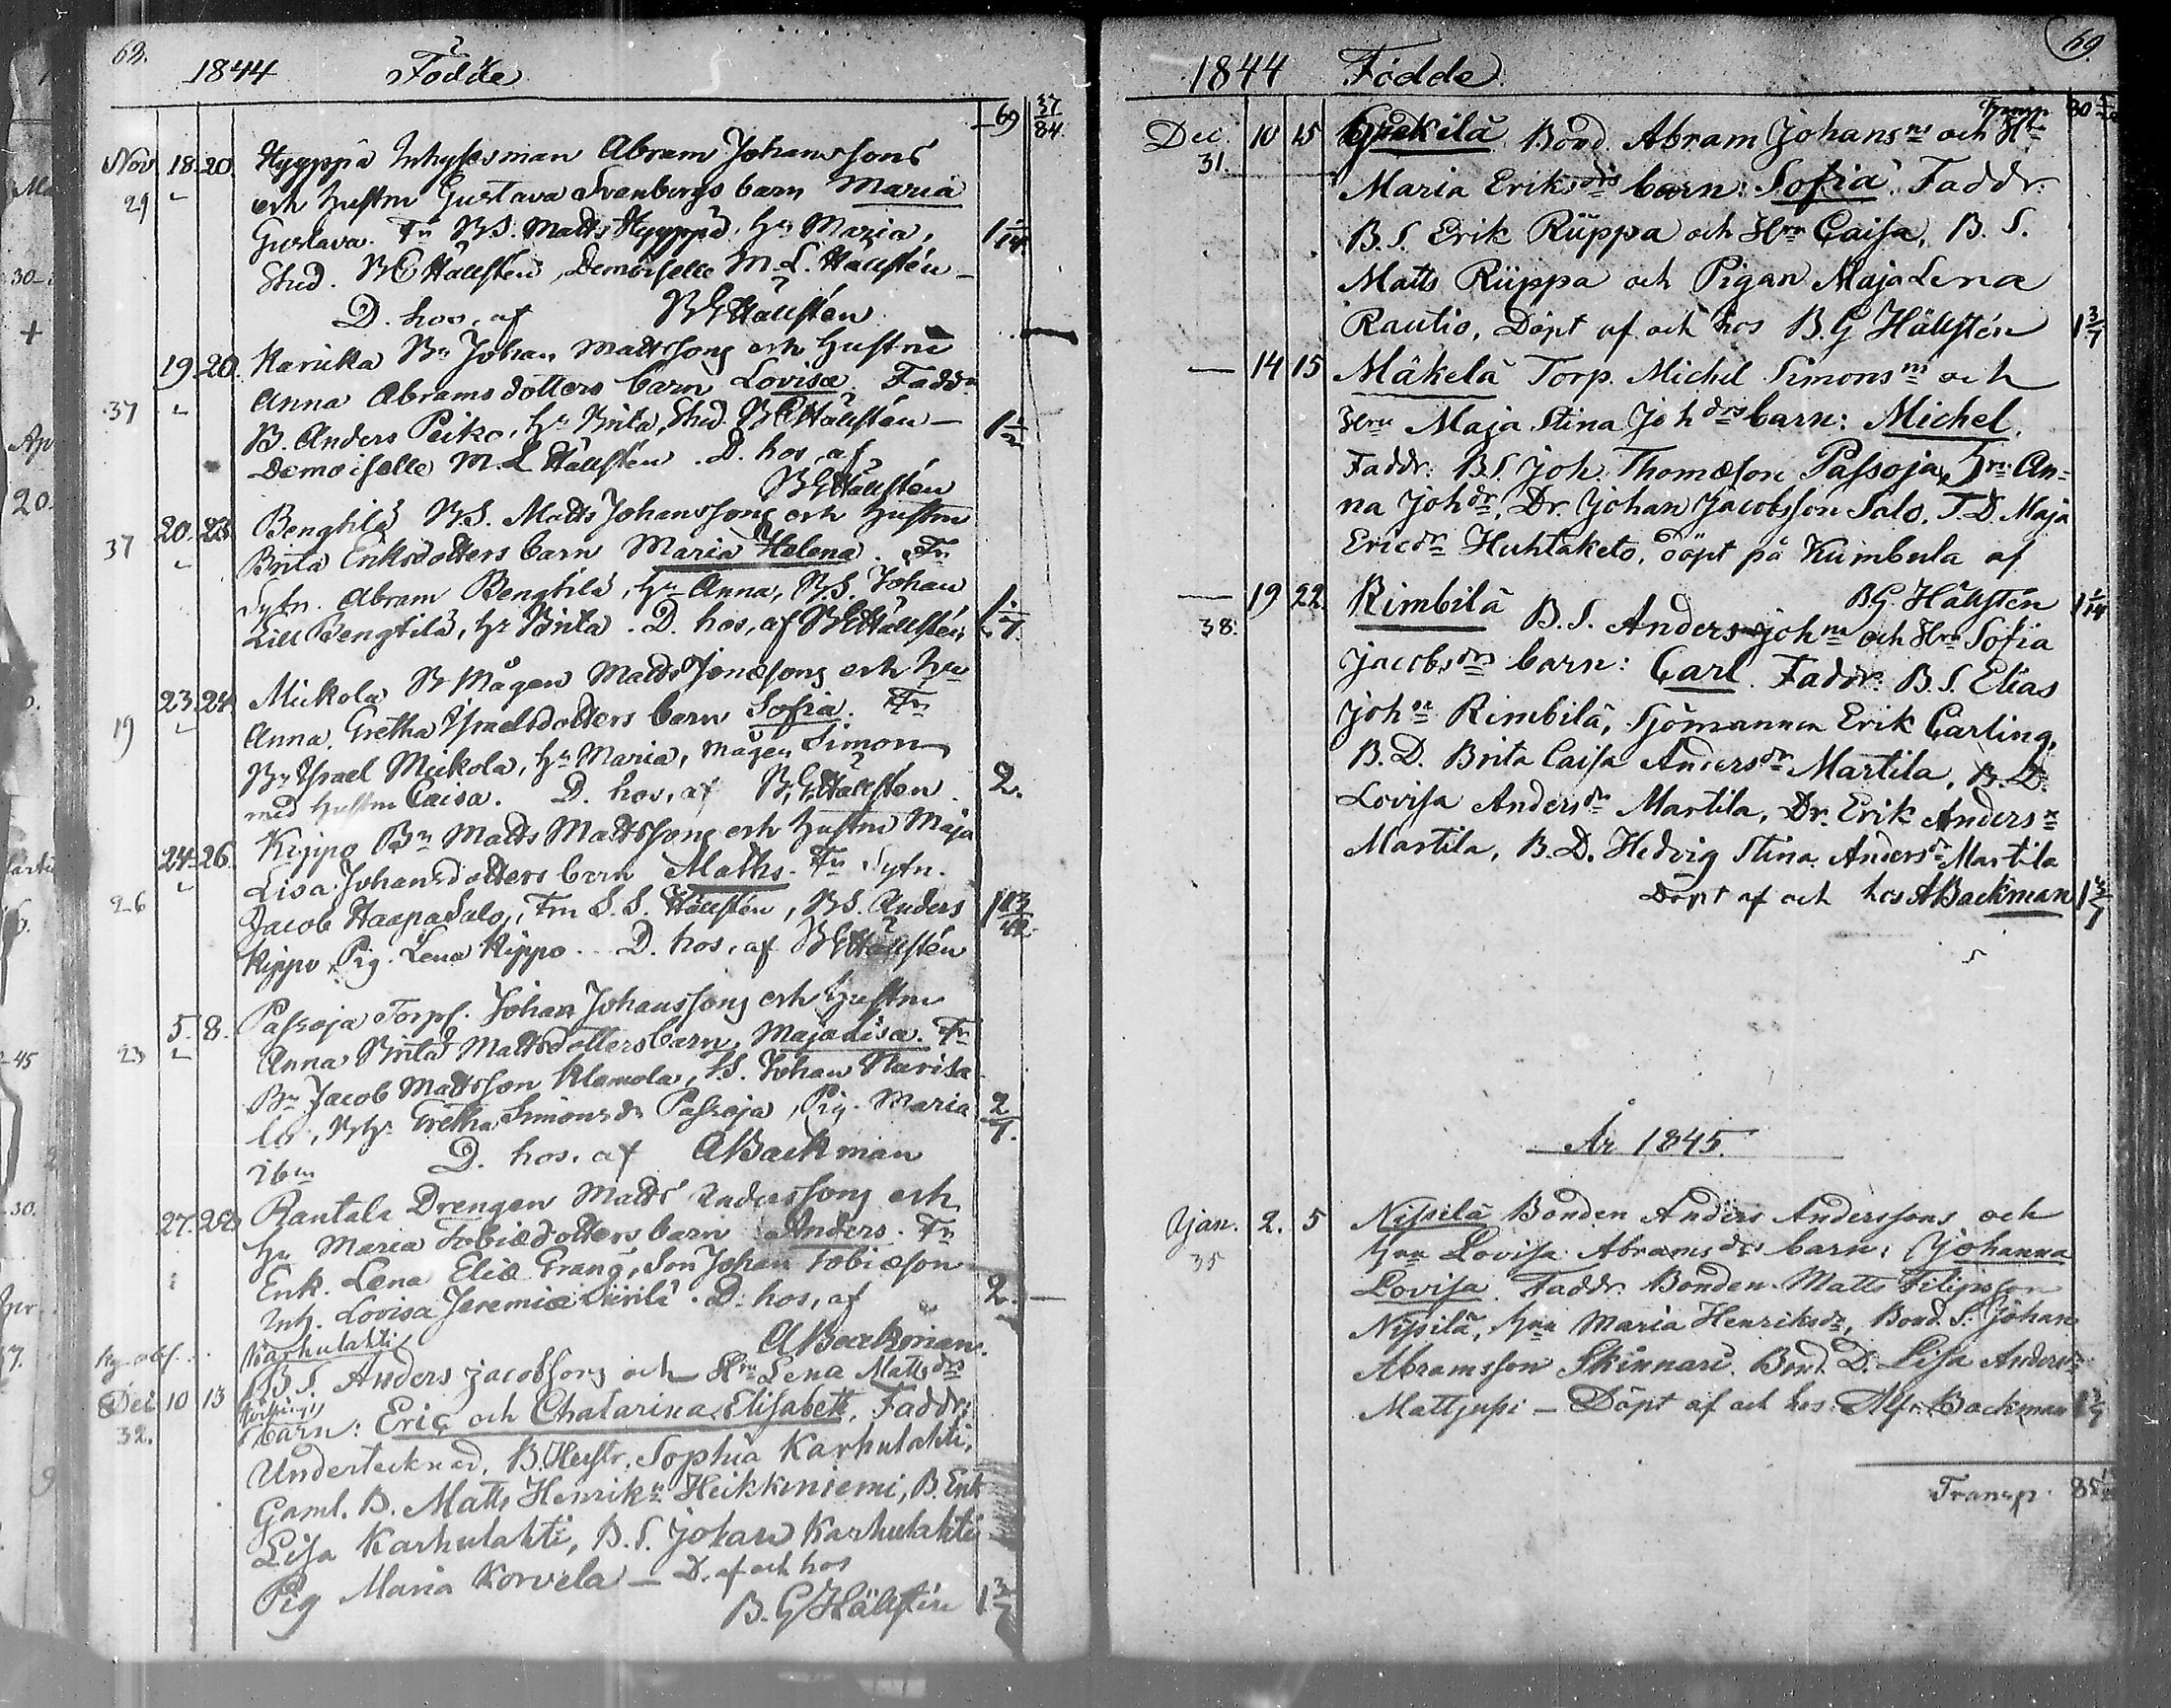 68.
1844 Födde
69 37/84
Nov 18. 20. Hyyppä Inhysesman Abram Johanssons
29 och Hustru Gustava Svanbergs barn Maria
Gustava. Fr B.S. Matts Hyyppä, Hu Maria, 1 1/14
Stud. B G Hällstén, Demoiselle M. L. Hällstén
D. hos, af B G Hällstén
19. 20. Karukka Bn Johan Mattssons och Hustru
37 Anna Abramsdotters barn Lovisa. Faddr
B. Anders Peiko, Hu Brita, Stud. B G Hällstén 1 1/2
Demoiselle M. L Hällstén. D. hos, af
B G Hällstén
20. 23. Bengtilä B.S. Matts Johanssons och Hustru
37 Brita Eriksdotters barn Maria Helena. Fr
Sytn. Abram Bengtilä, Hu Anna, B.S. Johan
Lill Bengtilä, Hu Brita. D. hos, af B G Hällstén
23. 24. Mickola B Mågen Matts Jonæsons och Hu
19 Anna Gretha Israelsdotters barn Sofia. Fr
Bn Israel Mickola, Hu Maria, Mågen Simon
med Hustru Caisa. D. hos, af B G Hällstén. 2.
24. 26. Kippo Bn Matts Mattssons och Hustru Maja
26 Lisa Johansdotters barn Maths. Fr Sytn.
Jacob Haapasalo, Frn S. S. Hällstén, B.S. Anders
Kippo, Pig. Lena Kippo. D. hos, af B G Hällstén
5. 8. Passoja Torps. Johan Johanssons och Hustru
23 Anna Brita Mattsdotters barn, Maja Lisa. Fr
Bn Jacob Mattsson Klemola, S.S. Johan
Gretha Simonsdr Passoja, Pig. Maria 2/7.
ibm D. hos, af A Backman
27. 28. Rautala Drengen Matts Anderssons och
Hu Maria Tobiædotters barn Anders. Fr
Enk. Lena Eliæ Grang, Son Johan Tobiæson
Inh. Lovisa Jeremiæ D. hos, af 2.
A Backman.
Karhulahti
Dec 10 13 B.S. Anders Jacobssons och Hru Lena Mattsdrs
32. barn: Eric och Chatarina Elisabeth, Faddr:
Undertecknad, B. Hustr. Sophia Karhulahti,
Gaml. B. Matts Henriksn Heikkiniemi, B. Enk
Lisa Karhulahti, B.S. Johan Karhulahti
Pig Maria Korvela — D. af och hos
B. G Hällstén 1 3/7
69.
1844 Födde
Transp
Dec. 10 15 Bond. Abram Johansns och Hu
31. Maria Eriksdrs barn: Sofia. Faddr:
B.S. Erik Rüppa och Hru Caisa, B. S.
Matts Rüppa och Pigan Maja Lena
Rautio, Döpt af och hos B. G Hällstén 1 3/7
— 14 15 Mäkelä Torp. Michel Simonsns och
Hru Maja Stina Johdrs barn: Michel.
Faddr: B.S. Joh. Thomæson Passoja, Hru An-
na Johdr, Dr. Johan Jacobsson Salo, T.D. Maja
Ericdr Huhtaketo, döpt på Kumbula af
B G. Hällstén 1 1/14
— 19 22. Rimbilä B.S. Anders Johns och Hru Sofia
38. Jacobsdrs barn: Carl. Faddr: B.S. Elias
Johsn Rimbilä, Sjömannen Erik Carling,
B.D. Brita Caisa Andersdr Martila, B.D.
Lovisa Andersdr Martila, Dr. Erik Andersn
Martila, B.D. Hedvig Stina Andersdr Martila
Döpt af och hos A Backman 1 3/7
År 1845.
Jan. 2. 5 Nissilä Bonden Anders Anderssons och
35 Hru Lovisa Abramsdrs barn: Johanna
Lovisa. Faddr. Bonden Matts Filipsson
Nissilä, Hru Maria Henriksdr, Bond. S. Johan
Abramsson Skinnari. Bond. D. Lisa Andersdr
Mattjusi — Döpt af och hos: Alfr. Backman 1 3/7
Transp.